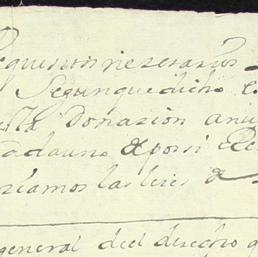 requisitos nesesarios
Segun que dicho e
sta Donazion aniu
adauno de por si Re
síamos las leies de
general del derecho q